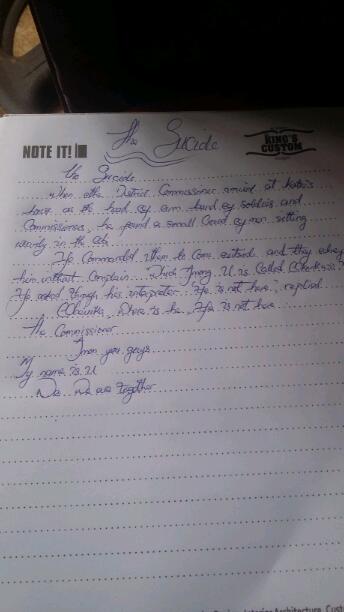 NOTE IT!
The Sucide
THE KING'S CUSTOM
The Sucide
When the District Commissioner arrived at
house as the head of arm band of soldiers and
Commissioners, he found a small Crowd of men sitting
wearily in the Obi
He Commanded them to Come outside and they obey
him without Complain Which Among U is Called
He asked through his interpreter. He is not here, replied
Obierika, where is he. He Is not here
The Commissioner
you guys
My name Is U
We We are together